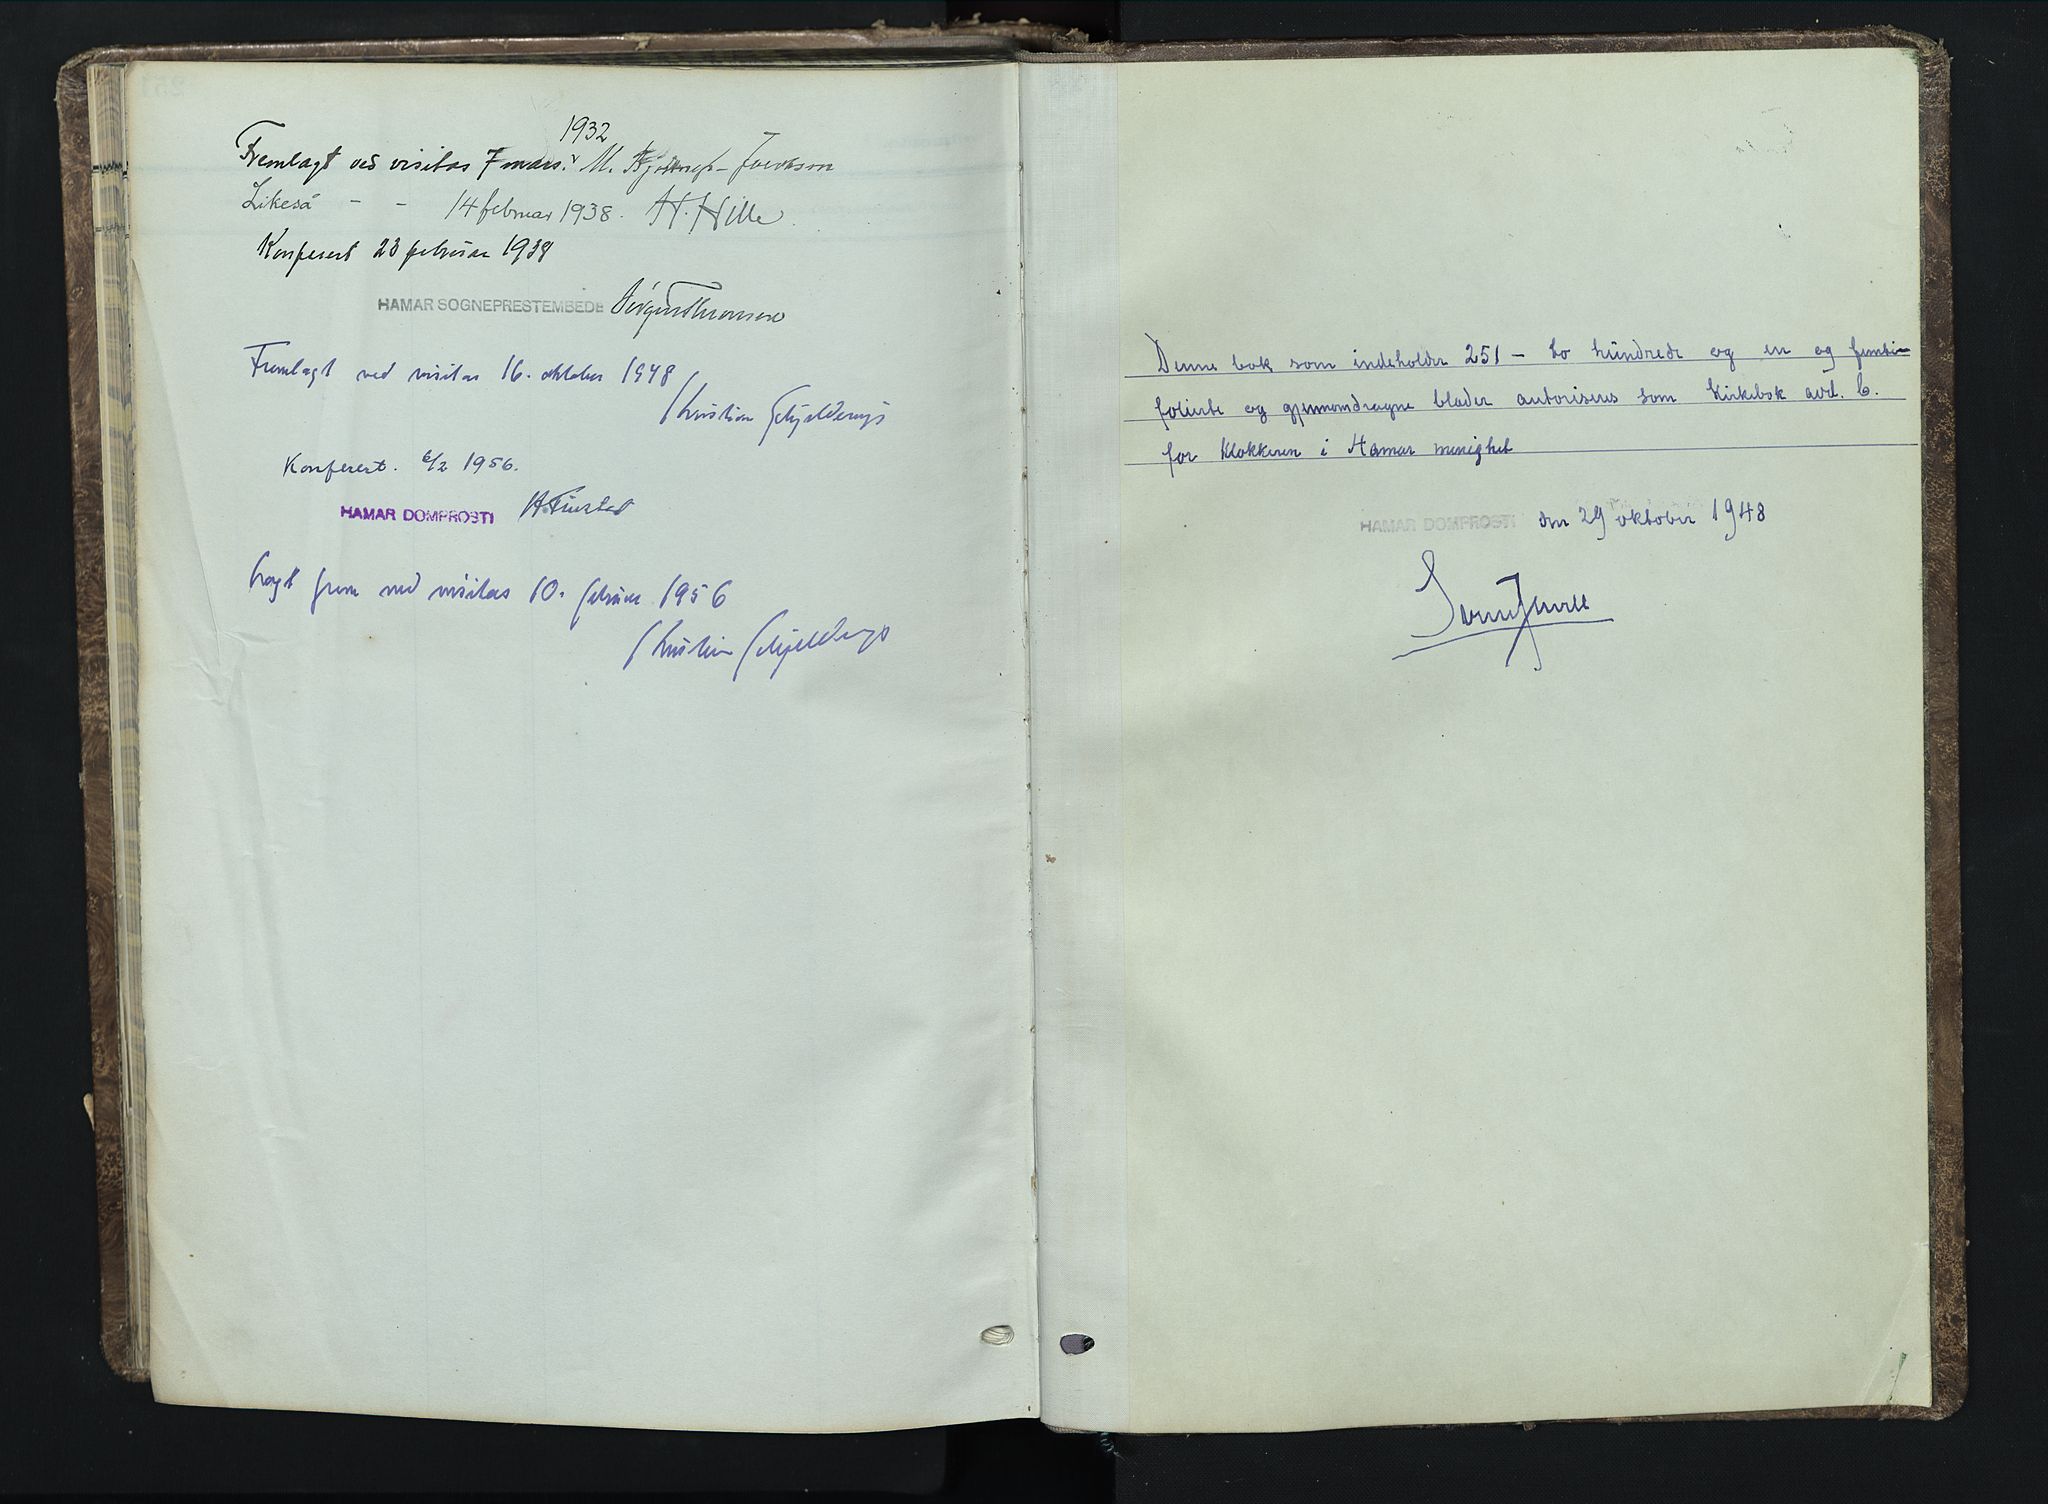 1932
Fremlagt ved visitas 7 mars. M. Bjønness-Jacobsen
Likeså - - 14 februar 1938. H. Hille
Konferert 23 februar 1938
HAMAR SOGNEPRESTEMBEDE
Fremlagt ved visitas 16. oktober 1948
Kristian Schjelderup
Konferert. 6/2 1956.
HAMAR DOMPROSTI
Lagt frem ved visitas 10. februar 1956
Kristian Schjelderup
Denne bok som indeholder 251 - to hundrede og en og femti-
folierte og gjennomdragne blader autoriseres som Kirkebok avd. C.
for Klokkeren i Hamar menighet
HAMAR DOMPROSTI den 29 oktober 1948